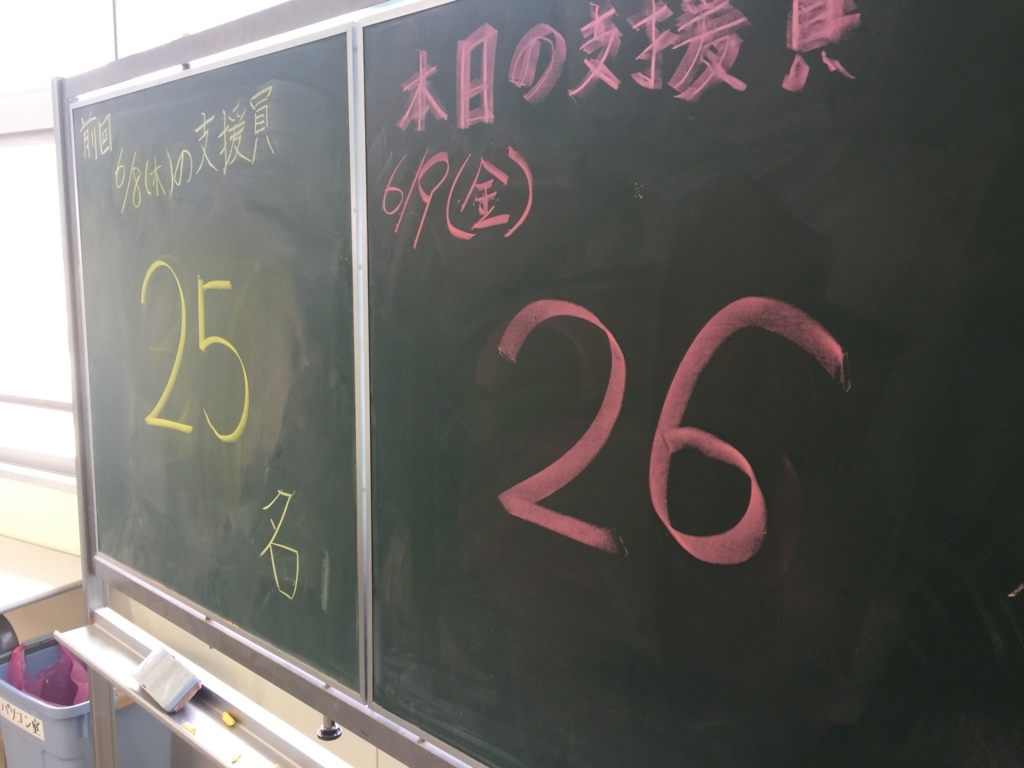 前回
6/8(木)の支援員
25
名
本日の支援員
6/9(金)
26
パソコン室